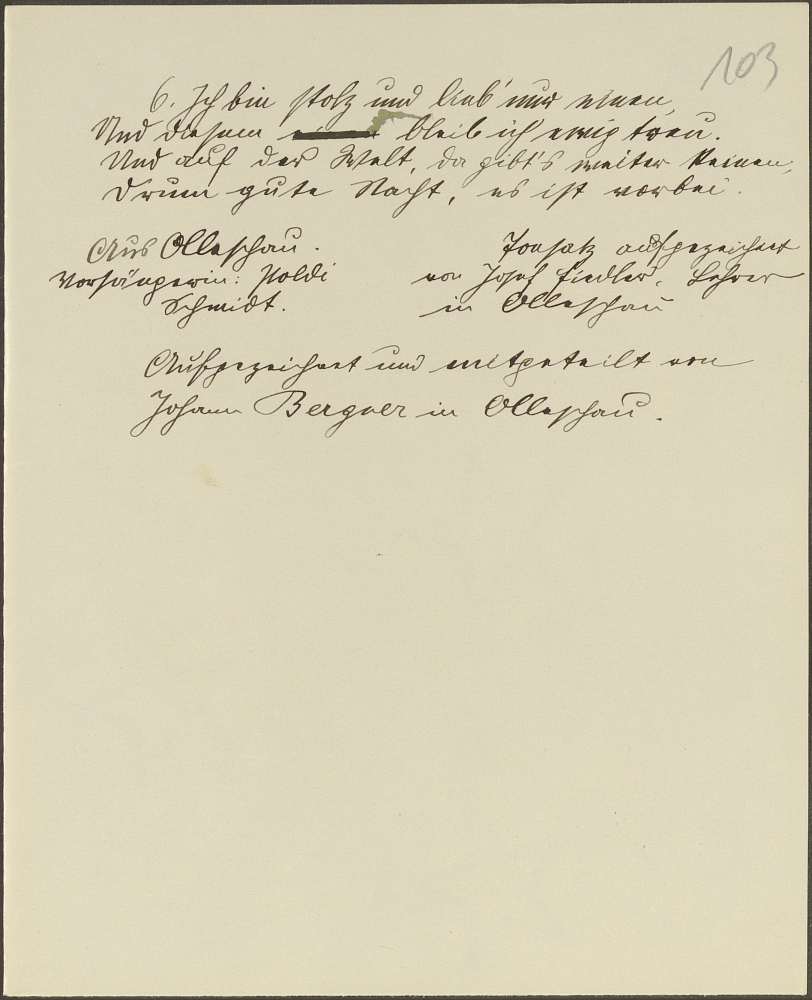 103
6. Ich bin stolz und lieb' nur einen,
Und diesem bleib ich ewig treu.
Und auf der Welt, da gibt's weiter keinen,
Drum gute Nacht, es ist vorbei.
Aus Olleschau.
Vorsängerin: Poldi
Schmidt.
Tonsatz aufgezeichnet
von Josef Fiedler, Lehrer
in Olleschau
Aufgezeichnet und mitgeteilt von
Johann Bergner in Olleschau.